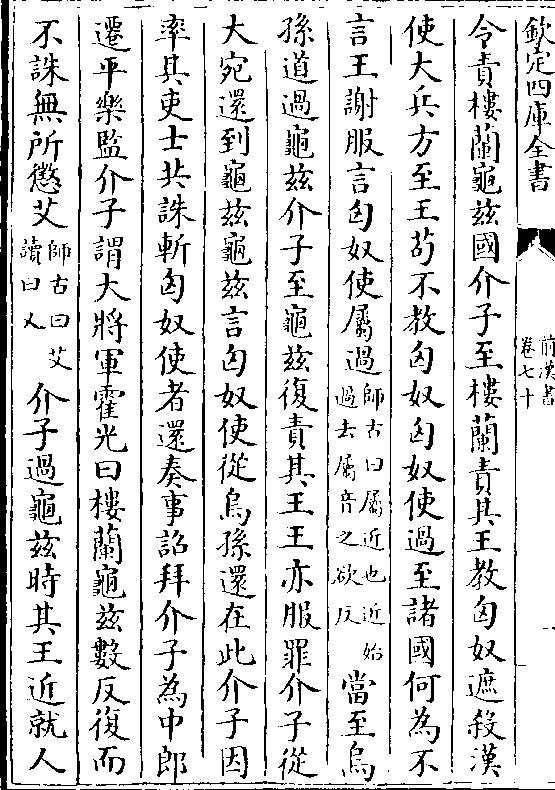 欽定四庫全書
前漢書
卷七十
令責樓蘭龜兹國介子至樓蘭責其王教匈奴遮殺漢
使大兵方至王苟不教匈奴匈奴使過至諸國何為不
言王謝服言匈奴使屬過師古曰屬近也近始過去屬音之欲反當至烏
孫道過龜兹介子至龜兹復責其王王亦服罪介子從
大宛還到龜兹龜兹言匈奴使從烏孫還在此介子因
率其吏士共誅斬匈奴使者還奏事詔拜介子為中郎
遷平樂監介子謂大將軍霍光曰樓蘭龜兹數反復而
不誅無所懲艾師古曰艾讀曰乂介子過龜兹時其王近就人